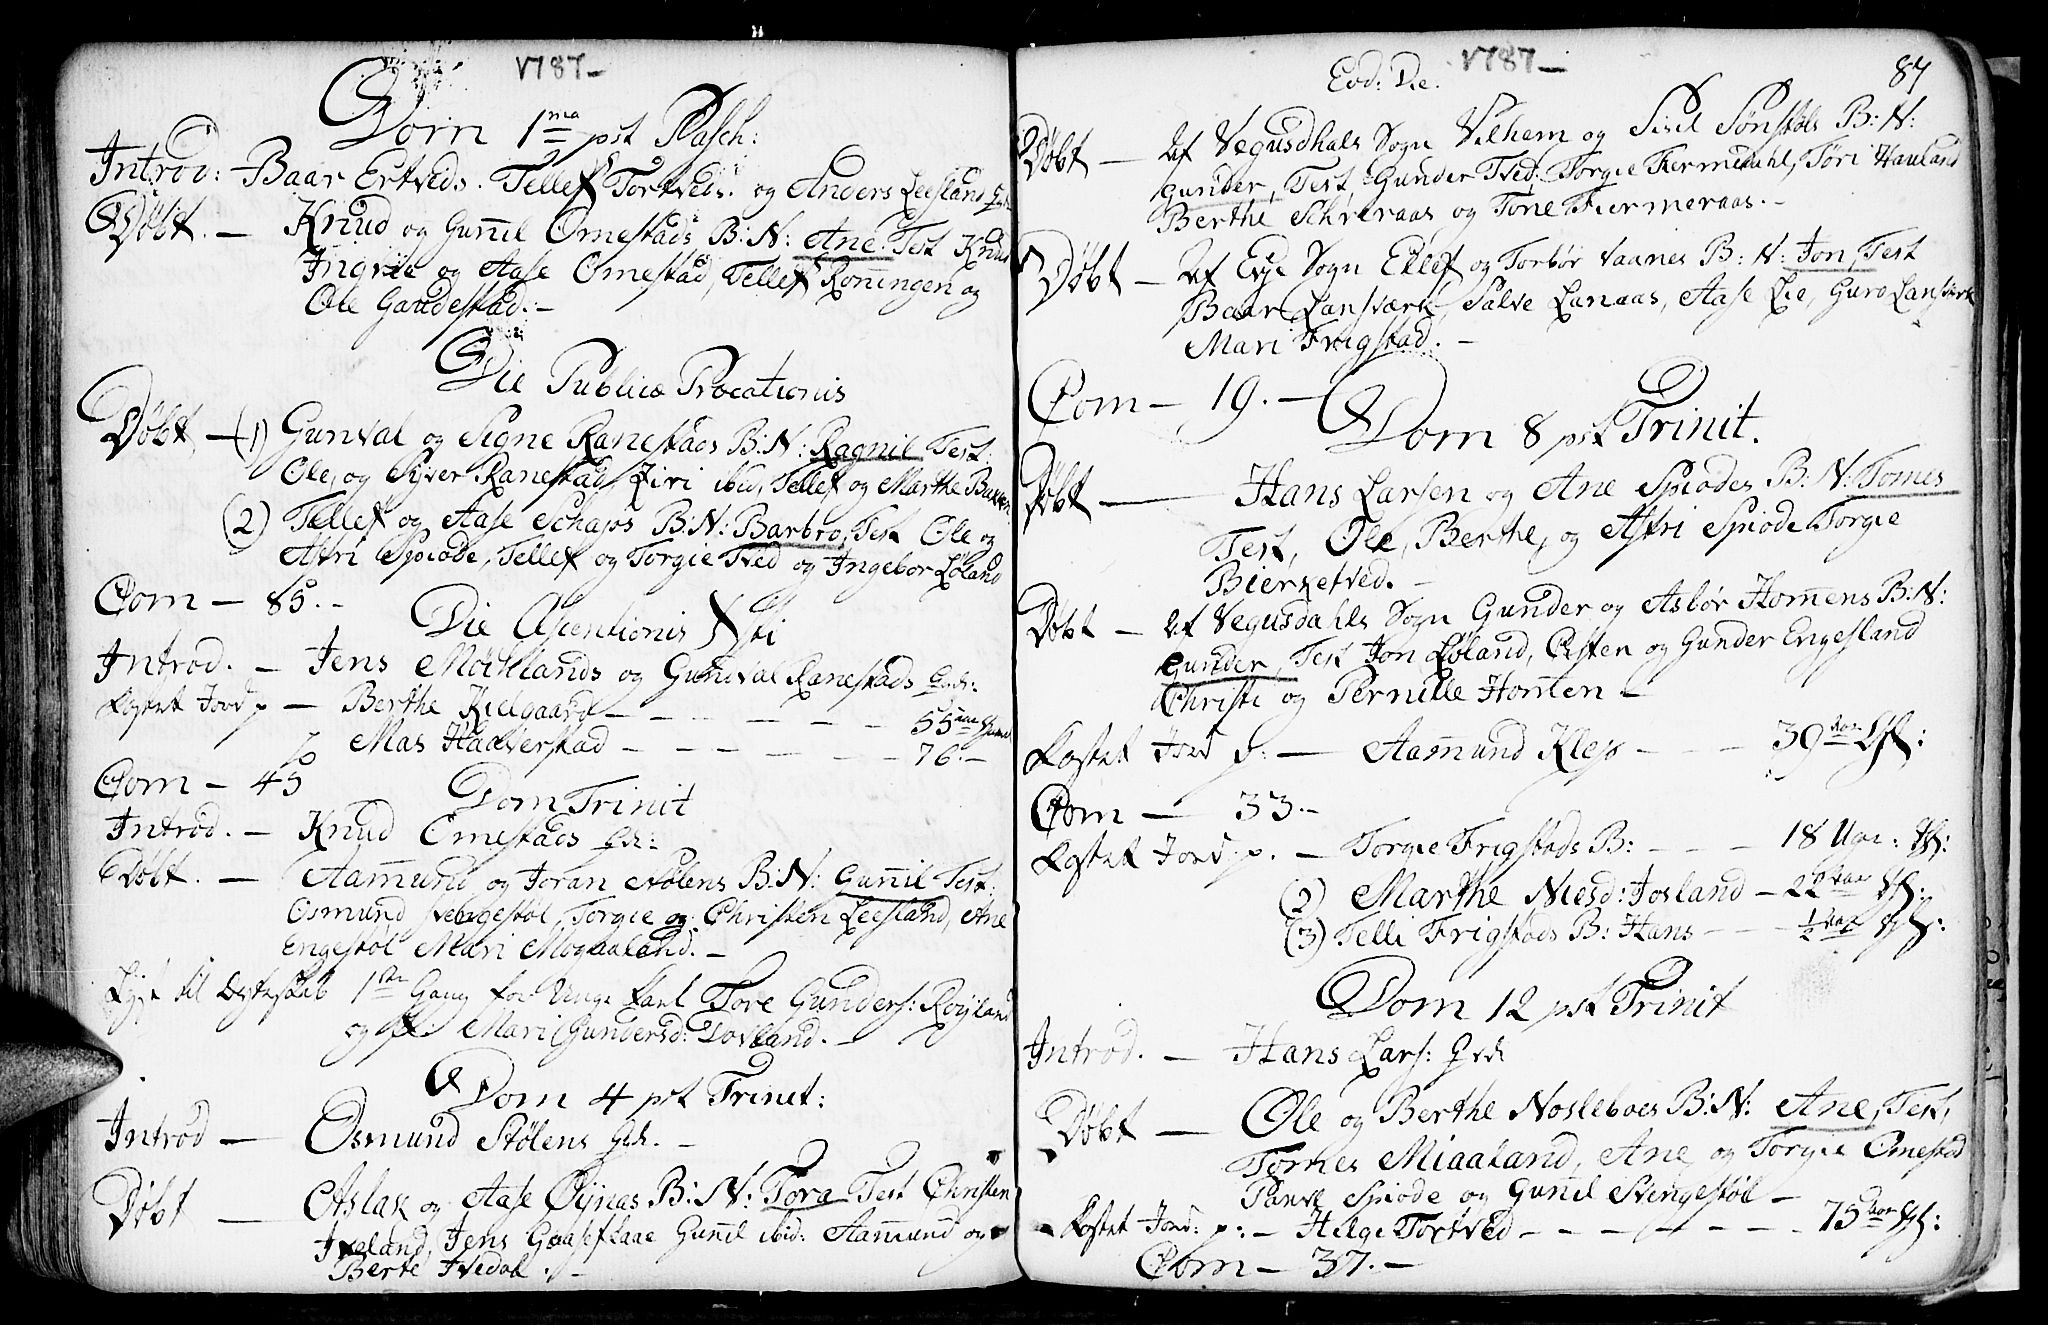 1787 -
Dom 1ma pst Pasch:
Introd: - Baar Ertveds. Tellef Tortveds. og Anders Leesland
Døbt. - Knud og Guñil Omestads B: N: Ane. Test Knud
og Aase Omestad, Tellef Roñingen og
Ole Gaudestad. -
Die Publicæ Precationis
Døbt - (1) Gunval og Signe Ranestads B: N: Ragnil Test:
Ole, og Syver Ranestad, Ziri ibid, Tellef og Marthe
(2) Tellef og Aase Schaps B: N: Barbro, Test Ole og
Astri Spiode, Tellef og Torgie Tved og Ingebor Løland
Com - 85. -
Die Ascentionis Xsti
Introd. - Jens Möcklands og Gundval Ranestads
Kastet Jord p - Berthe Kielgaard - - - - - 55
Mas Haaverstad - - - - - 76. -
Com - 45
Dom Trinit
Introd. - Knud Omestads
Døbt. - Aam̃und og Joran Stølens B: N: Guñil Test:
Osmund Svengestøl, Torgie og Christen Leesland, Ane
Engestøl Mari Mogaaland. -
Lyst til Ægteskab 1ste Gang for Unge Karl Tore Gunders: Røyland
og Mari Gundersd:
Dom 4 pst Trinit:
Introd - Osmund Stølens
Døbt - Aslak og Aase Øynas B: N: Tora Test Christen
Iveland, Jens Gaaseflaae Guñil ibid: Aam̃und og
Berte Ivedal. -
1787 - 87
Eod: Die.
Døbt - Af Vegusdhals Sogn Vilhem og Sisel Sønstøls B: N:
Gunder, Test Gunder Tved: Torgie Fiermedahl, Tøri Hauland
Berthe og Tone Fiermeraas. -
Døbt - Af Evje Sogn Ellef og Torbør Vaanes B: N: Jon, Test
Baar Lansværk, Salve Lanaas, Aase Lie, Guro Lansværk
Mari Frigstad. -
Com - 19. -
Dom 8 pst Trinit.
Døbt - Hans Larsen og Ane Spiodes B: N: Tomes
Test, Ole, Berthe, og Astri Spiode Torgie
Bierketved. -
Døbt - Af Vegusdahls Sogn Gunder og Asbør Hom̃ens B: N:
Gunder, Test Jon Løland, Østen og Gunder Engesland
Christi og Pernille Hom̃en -
Kastet Jord p: - Aam̃und Klep - - - 39
Com - 33. -
Kastet Jord: p. - Torgie Frigstads B: - - - 18 Uger:
(2) Marthe Nielsd: Josland - 22
(3) Telli Frigstads B: Hans - - - ½
Dom 12 pst Trinit
Introd. - Hans Lars:
Døbt - Ole og Berthe Nosleboes B: N: Ane, Test,
Tomes Miaaland, Ane og Torgie Omestad
Spiode og Guñil Svengestøl -
Kastet Jord: p: - Helge Tortved - - - - - 75
Com - 37. -